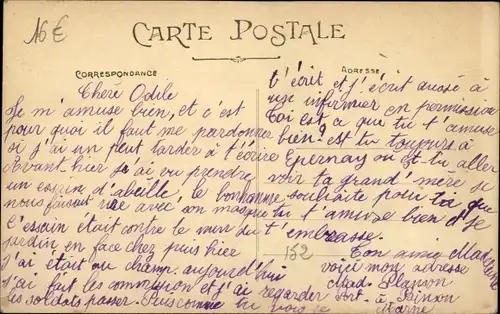 16 €
CARTE POSTALE
CORRESPONDANCE
ADRESSE
Cheré Odile
Je m'amuse bien, et c'est
pour quoi il faut me pardonner
si j'ai un peut tarder à t'écrire
Avant hier j'ai vu prendre
un essaim d'abeille. le bonhomme
nous faisait rire avec son masque
L'essain était contre le mur du
jardin en face chez puis hier
j'ai était au champ. aujourd'hui
j'ai fait les commission et j'ai regarder
les soldats passer. Puis comme tu
t'écrit et j'écrit aussé à
infirmier en permission
Toi est ce que tu t'amuse
bien? est tu toujours à
Epernay ou est-tu aller
voir ta grand' mère. je
souhaite pour ta que
tu t'amuse bien d'se
t'embrasse.
152
Ton amie
voici mon adresse
Mad. Planson
à
Marne